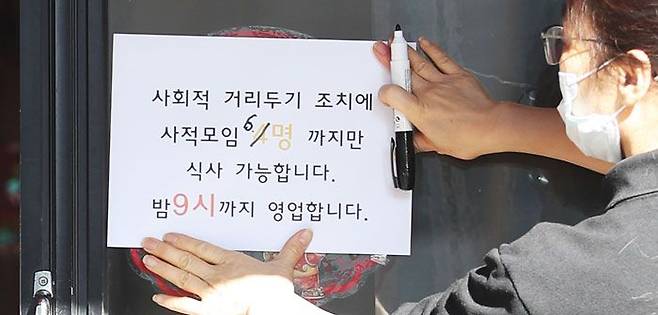 사회적 거리두기 조치에
사적모임 6 4명 까지만
식사 가능합니다.
밤9시까지 영업합니다.